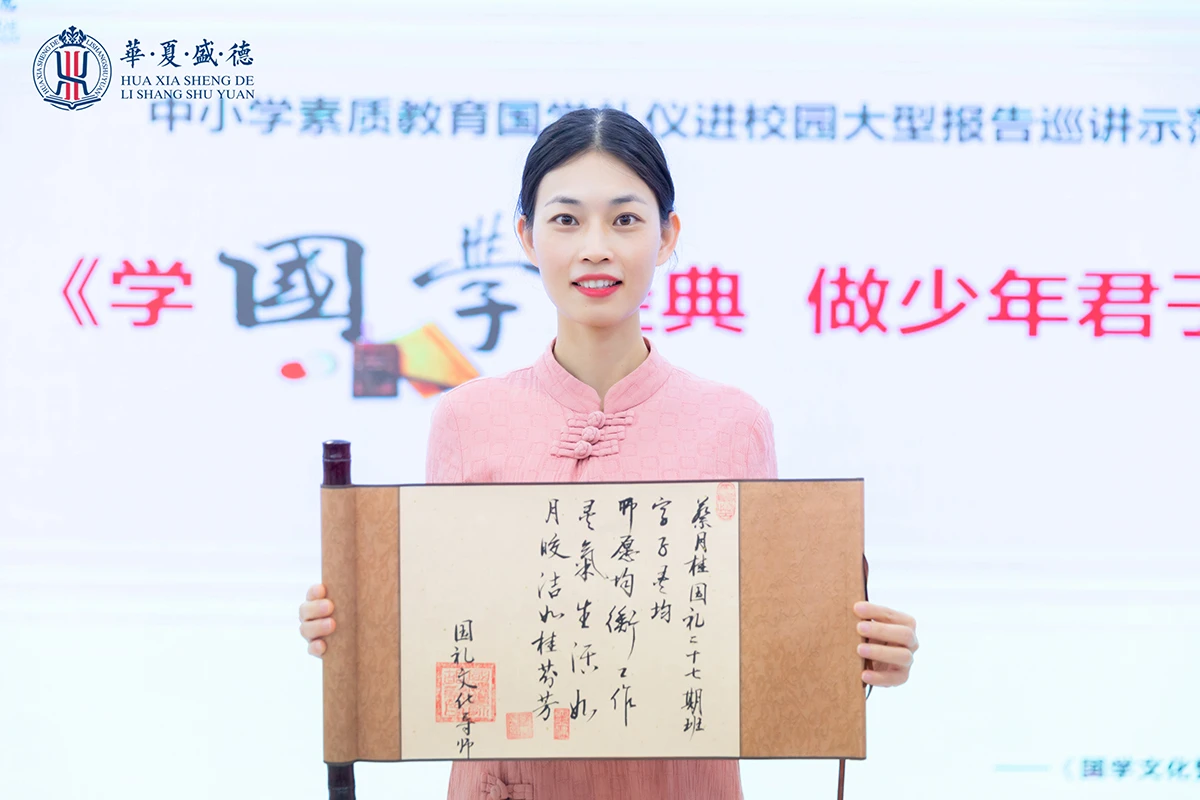 華·夏·盛·德
HUA XIA SHENG DE
LI SHANG SHU YUAN
HUAXIA SHENG DE LISHANGSHUYUAN
中小学素质教育国学礼仪进校园大型报告巡讲示范
《学國學经典 做少年君子
蔡月桂国礼二十七期班
字子灵均
所愿均衡工作
灵氣生活如
月皎洁如桂芬芳
国礼文化导师
——《国学文化